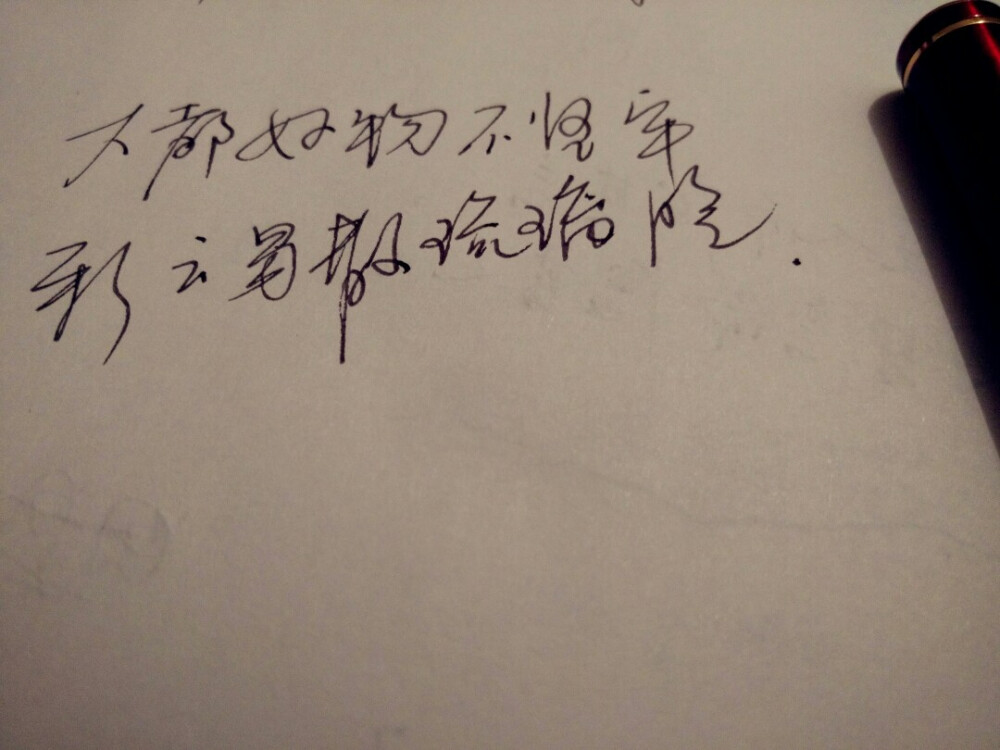 大都好物不坚牢
彩云易散琉璃脆.